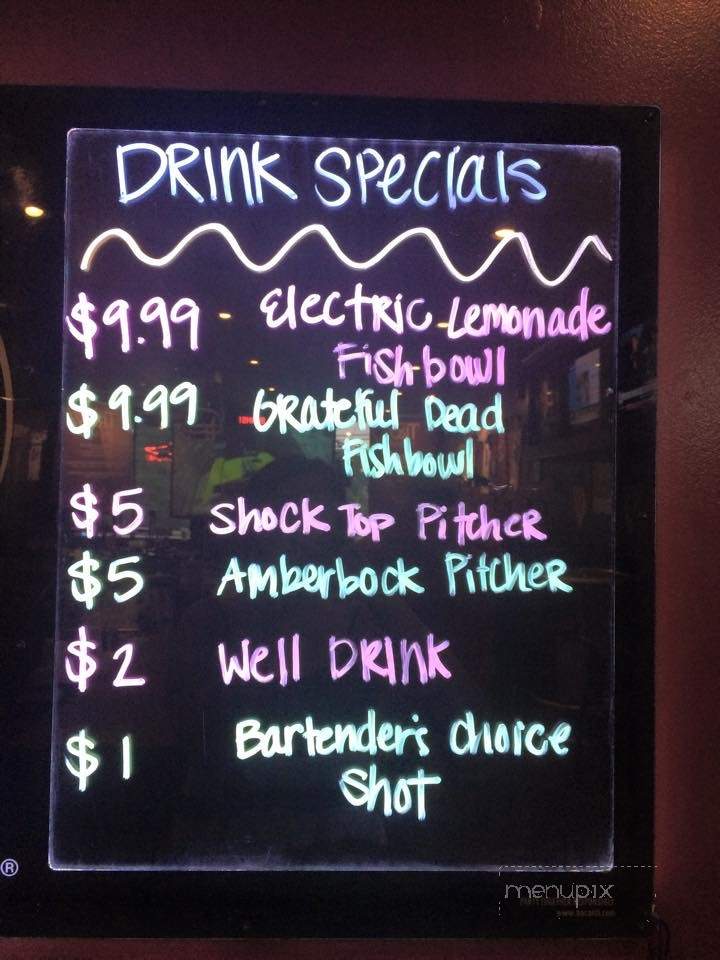 DRINK SPECIALS
$9.99 - Electric Lemonade
Fishbowl
$9.99 Grateful Dead
Fishbowl
$5 Shock Top Pitcher
$5 Amberbock Pitcher
$2 Well DRINK
$1 Bartender's choice
Shot
®
menupix
www.bacardi.com